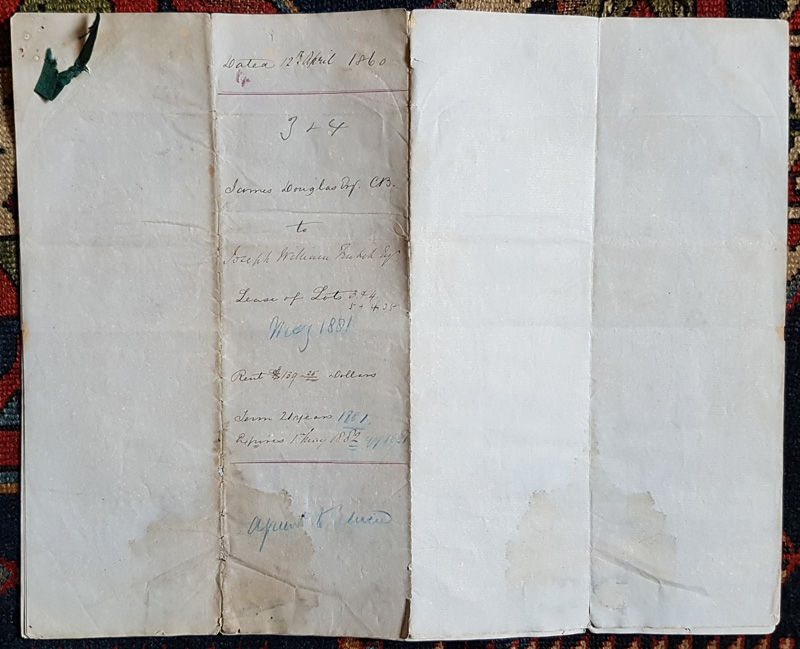 Dated 12th April 1860
3 & 4
James Douglas Esq. CB.
to
Joseph William Esq
Lease of Lots 3 & 4
May 1881
Rent $139 Dollars
Term 21 years 1881
Expires 1st May 1882